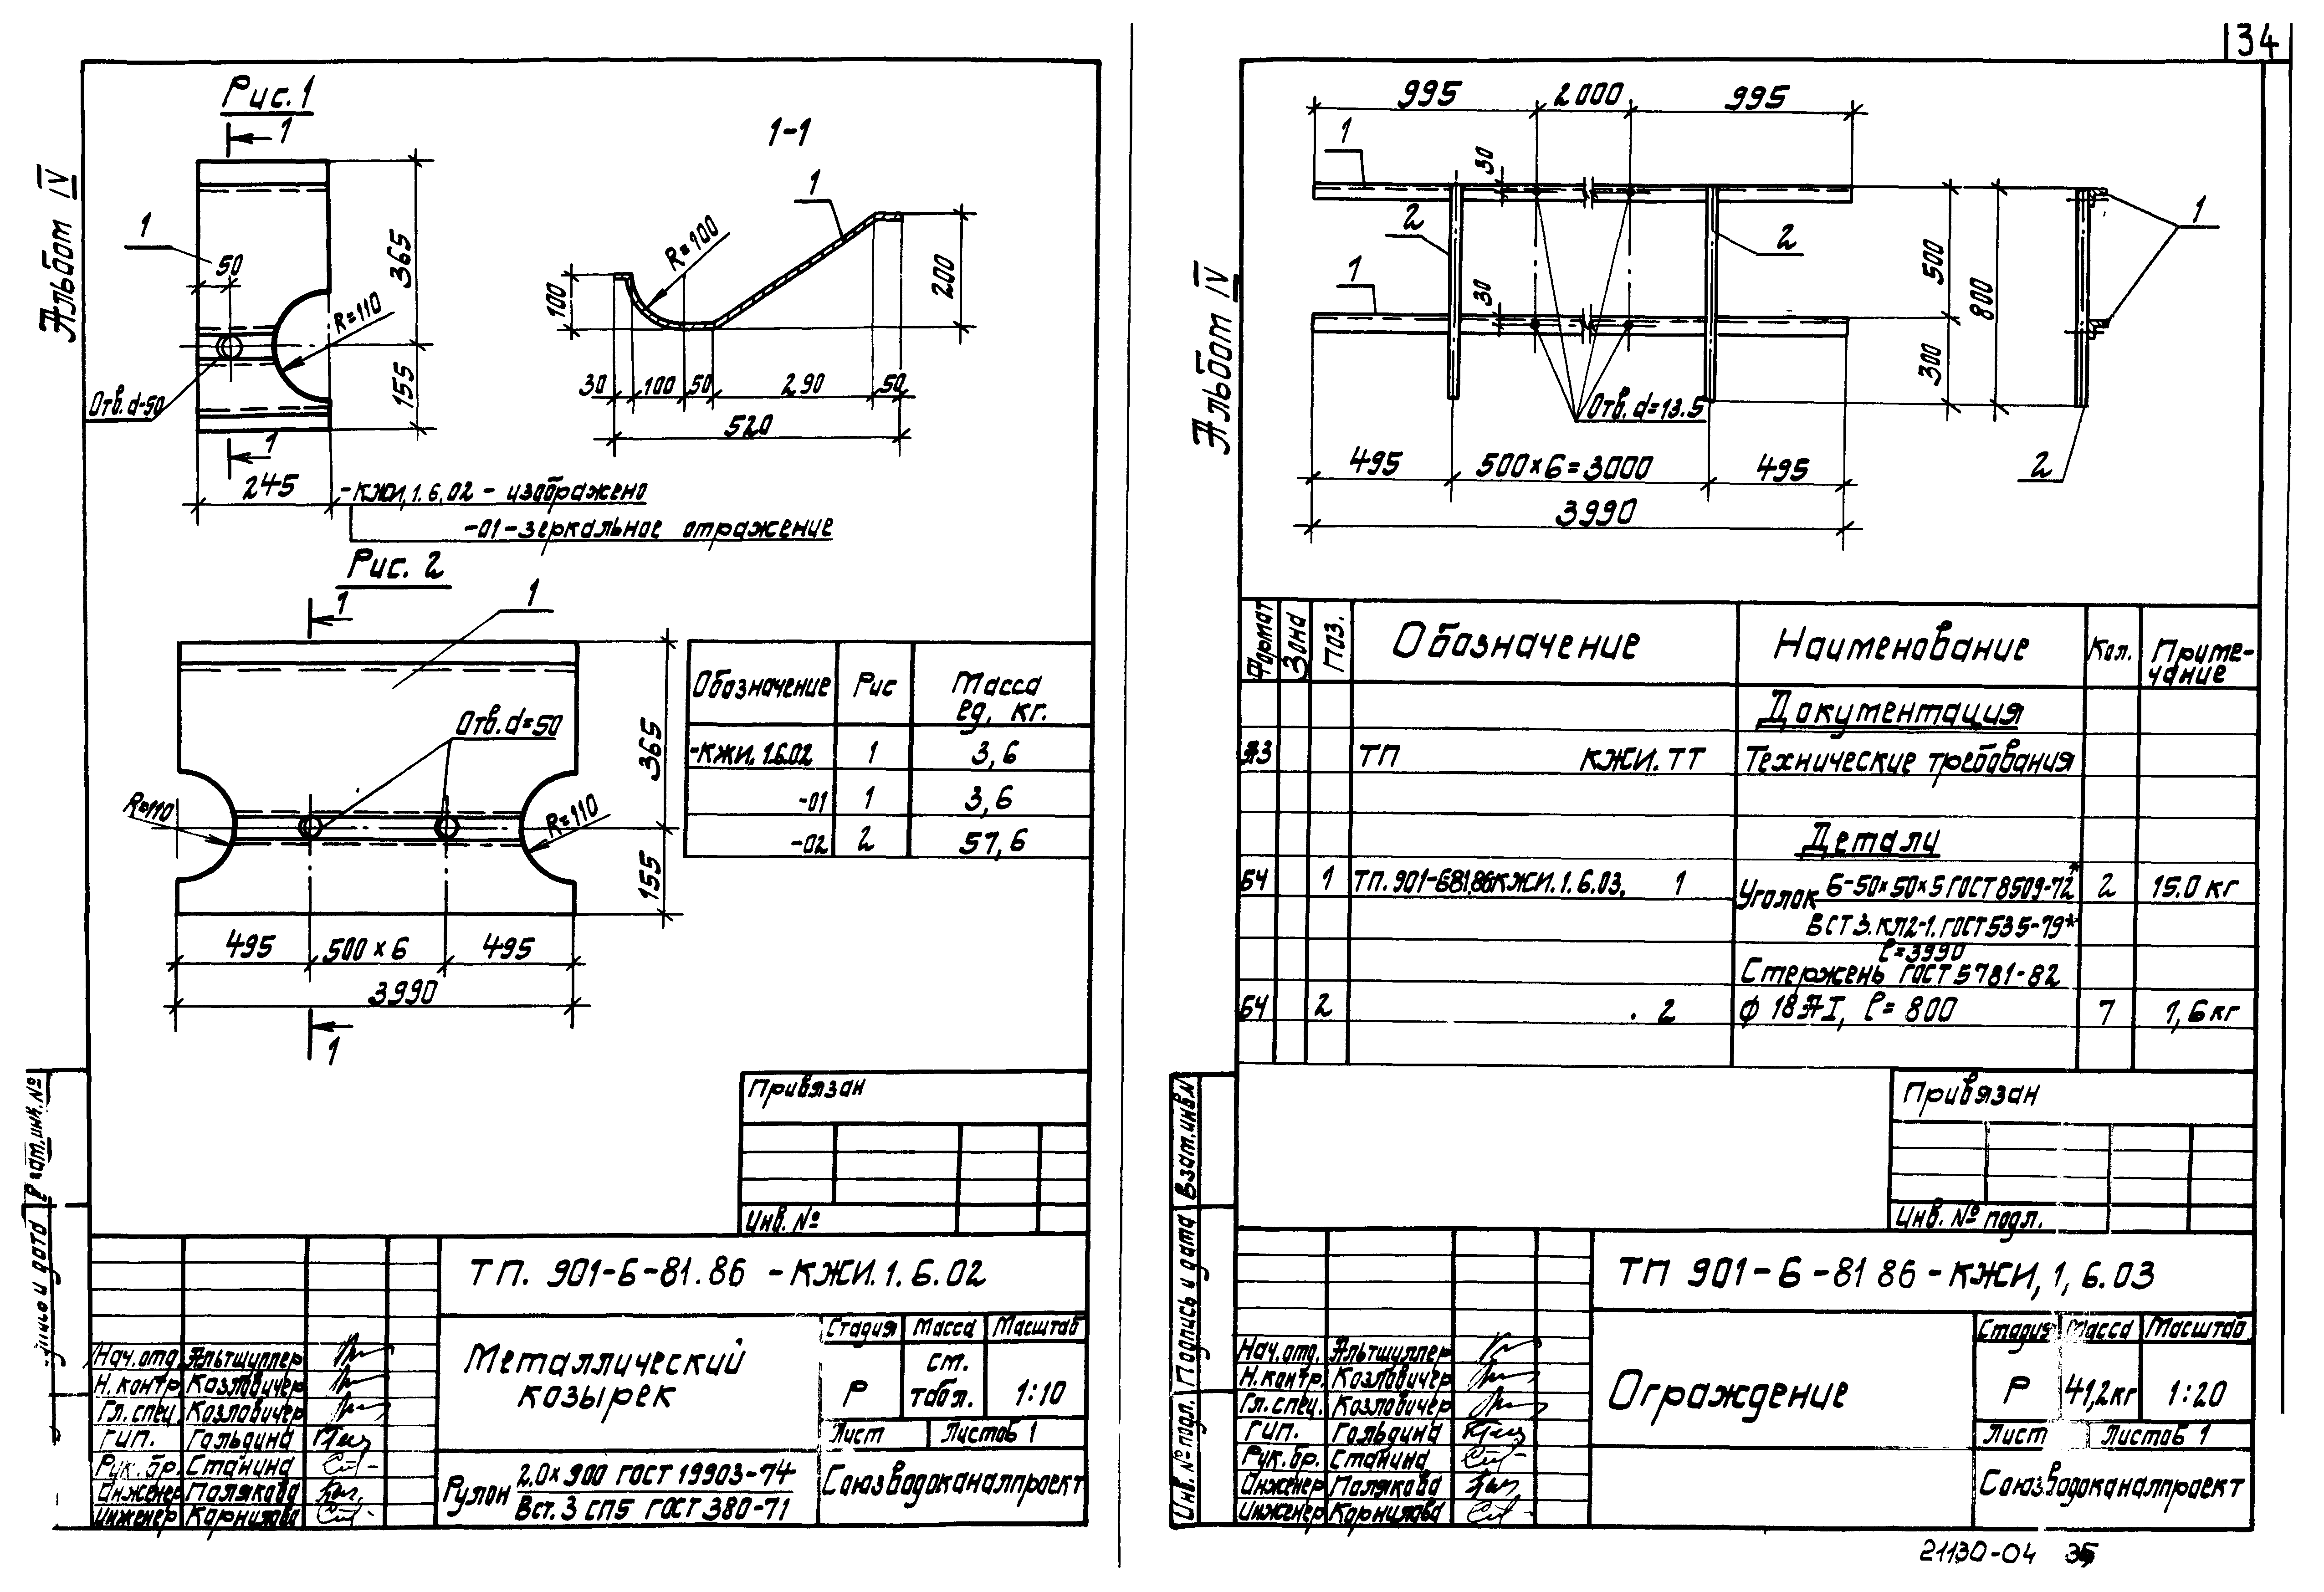 34
Альбом IV
Рис. 1
1
1
50
365
155
R=110
Отв. d-50
1
245
-КЖИ.1.6.02 - изображено
-01-зеркальное отражение
1-1
1
R=100
100
200
30 100 50 290 50
520
Рис. 2
1
1
Отв. d=50
R=110
R=110
365
155
495 500×6 495
3990
1
Обозначение Рис Масса ед, кг.
-КЖИ.1.6.02 1 3,6
-01 1 3,6
-02 2 57,6
Привязан
Инв. №
ТП. 901-6-81.86 -КЖИ.1.6.02
Металлический
козырек
Стадия Масса Масштаб
Р ст. табл. 1:10
Лист Листов 1
Нач.отд. Альтшуллер
Н.контр. Козловичер
Гл.спец. Козловичер
ГИП. Гольдина
Рук.бр. Станина
Инженер Полякова
Инженер Корнилова
Рулон 2.0×900 ГОСТ 19903-74
Вст.3 СП5 ГОСТ 380-71
Союзводоканалпроект
Альбом IV
995 2000 995
1
30
2
2
1
30
Отв. d=13.5
495 500×6=3000 495
3990
500
800
300
1
2
Формат Зона Поз. Обозначение Наименование Кол. Приме-
чание
Документация
А3 ТП КЖИ.ТТ Технические требования
Детали
БЧ 1 ТП.901-681.86КЖИ.1.6.03. 1 Уголок Б-50×50×5 ГОСТ 8509-72* 2 15.0 кг
ВСТ3.КП2-1.ГОСТ535-79*
ℓ=3990
Стержень ГОСТ 5781-82
БЧ 2 . 2 ϕ 18 АI, ℓ= 800 7 1,6 кг
Привязан
Инв. № подл.
Взам.инв.N
Подпись и дата
Инв. № подл.
ТП 901-6-81 86-КЖИ,1,6.03
Ограждение
Стадия Масса Масштаб.
Р 41,2кг 1:20
Лист Листов 1
Нач.отд. Альтшуллер
Н.контр. Козловичер
Гл.спец. Козловичер
ГИП. Гольдина
Рук.бр. Станина
Инженер Полякова
Инженер Корнилова
Союзводоканалпроект
21130-04 35